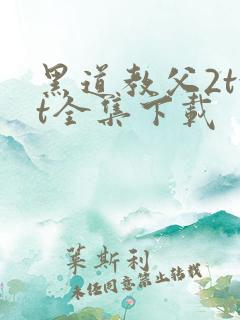 黑道教父2tx
t全集下载
莱斯利
未经同意禁止转载